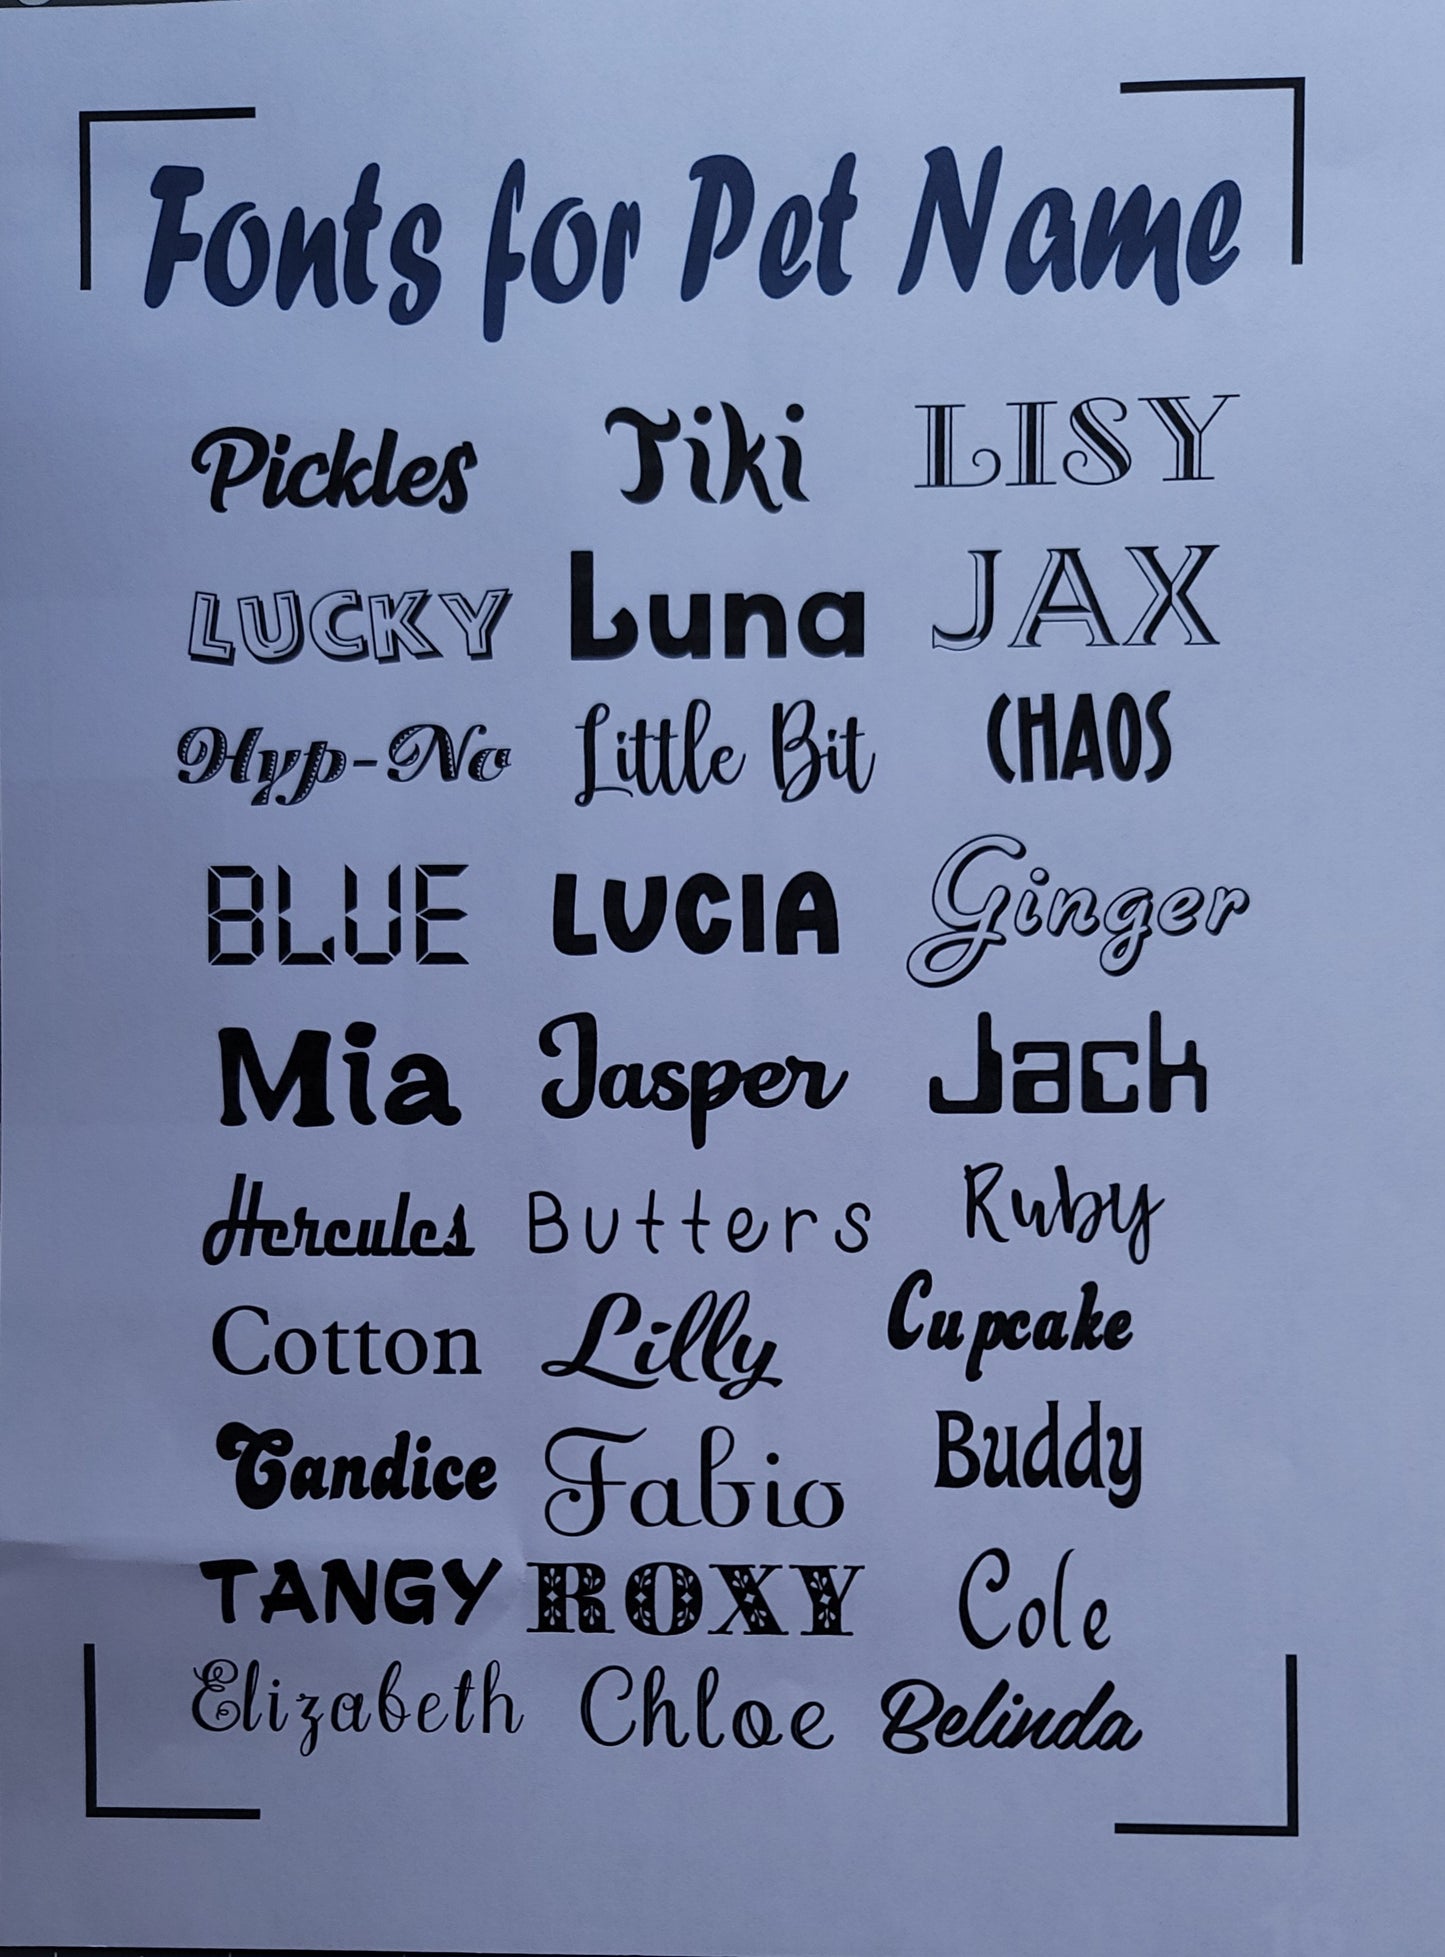 Fonts for Pet Name
Pickles Tiki LISY
LUCKY Luna JAX
Hyp-No Little Bit CHAOS
BLUE LUCIA Ginger
Mia Jasper Jack
Hercules Butters Ruby
Cotton Lilly Cupcake
Candice Fabio Buddy
TANGY ROXY Cole
Elizabeth Chloe Belinda